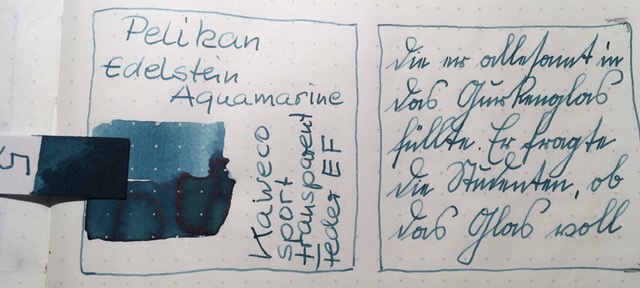 Pelikan
Edelstein
Aquamarine
Kaweco
sport
transparent
feder EF
5
die er allesamt in
das Gurkenglas
füllte. Er fragte
die Studenten, ob
das Glas voll